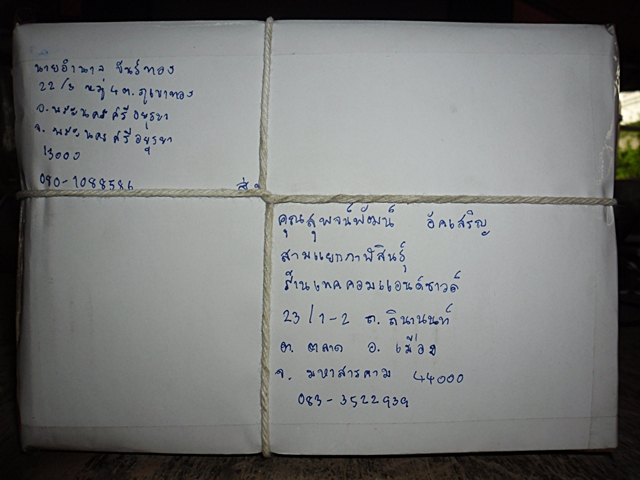 นายอำนาจ ขันธ์ทอง
22/3 หมู่ 4 ต.ภูเขาทอง
อ.พระนครศรีอยุธยา
จ.พระนครศรีอยุธยา
13000
080-1088586
ส่ง
คุณสุพจน์พัฒน์ อัคเสริญ
สามแยกกาฬสินธุ์
ร้านเทคคอมแอนด์ซาวด์
23/1-2 ถ. ถีนานนท์
ต. ตลาด อ. เมือง
จ. มหาสารคาม 44000
083-3522939